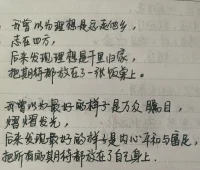 我曾以为理想是远走他乡，
志在四方，
后来发现理想是千里归家，
把期待都放在了一张饭桌上。
我曾以为最好的样子是万众瞩目，
熠熠发光，
后来发现最好的样子是内心平和与富足，
把所有的期待都放在了自己身上.